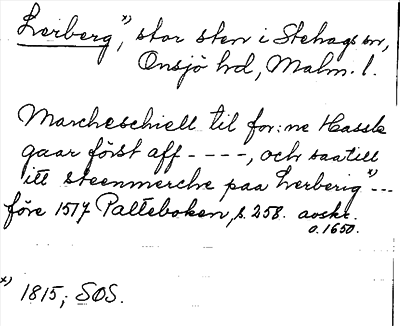 Lerberg*), stor sten i Stehags sn,
Onsjö hd, Malm. l.
Marcheschiell til for:ne Hassle
gaar först aff - - - -, och saa till
itt steenmerche paa Lerberig*) ---
före 1517 Palteboken, s. 258. avskr.
o. 1650.
*) 1815; SOS.